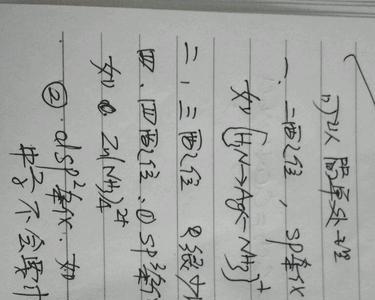 可以简单处理
一、二配位，sp杂化
如[H₃N→Ag←NH₃]⁺
二、三配位 很少
四、四配位、①sp³杂
如 Zn(NH₃)₄²⁺
②dsp²杂化.如